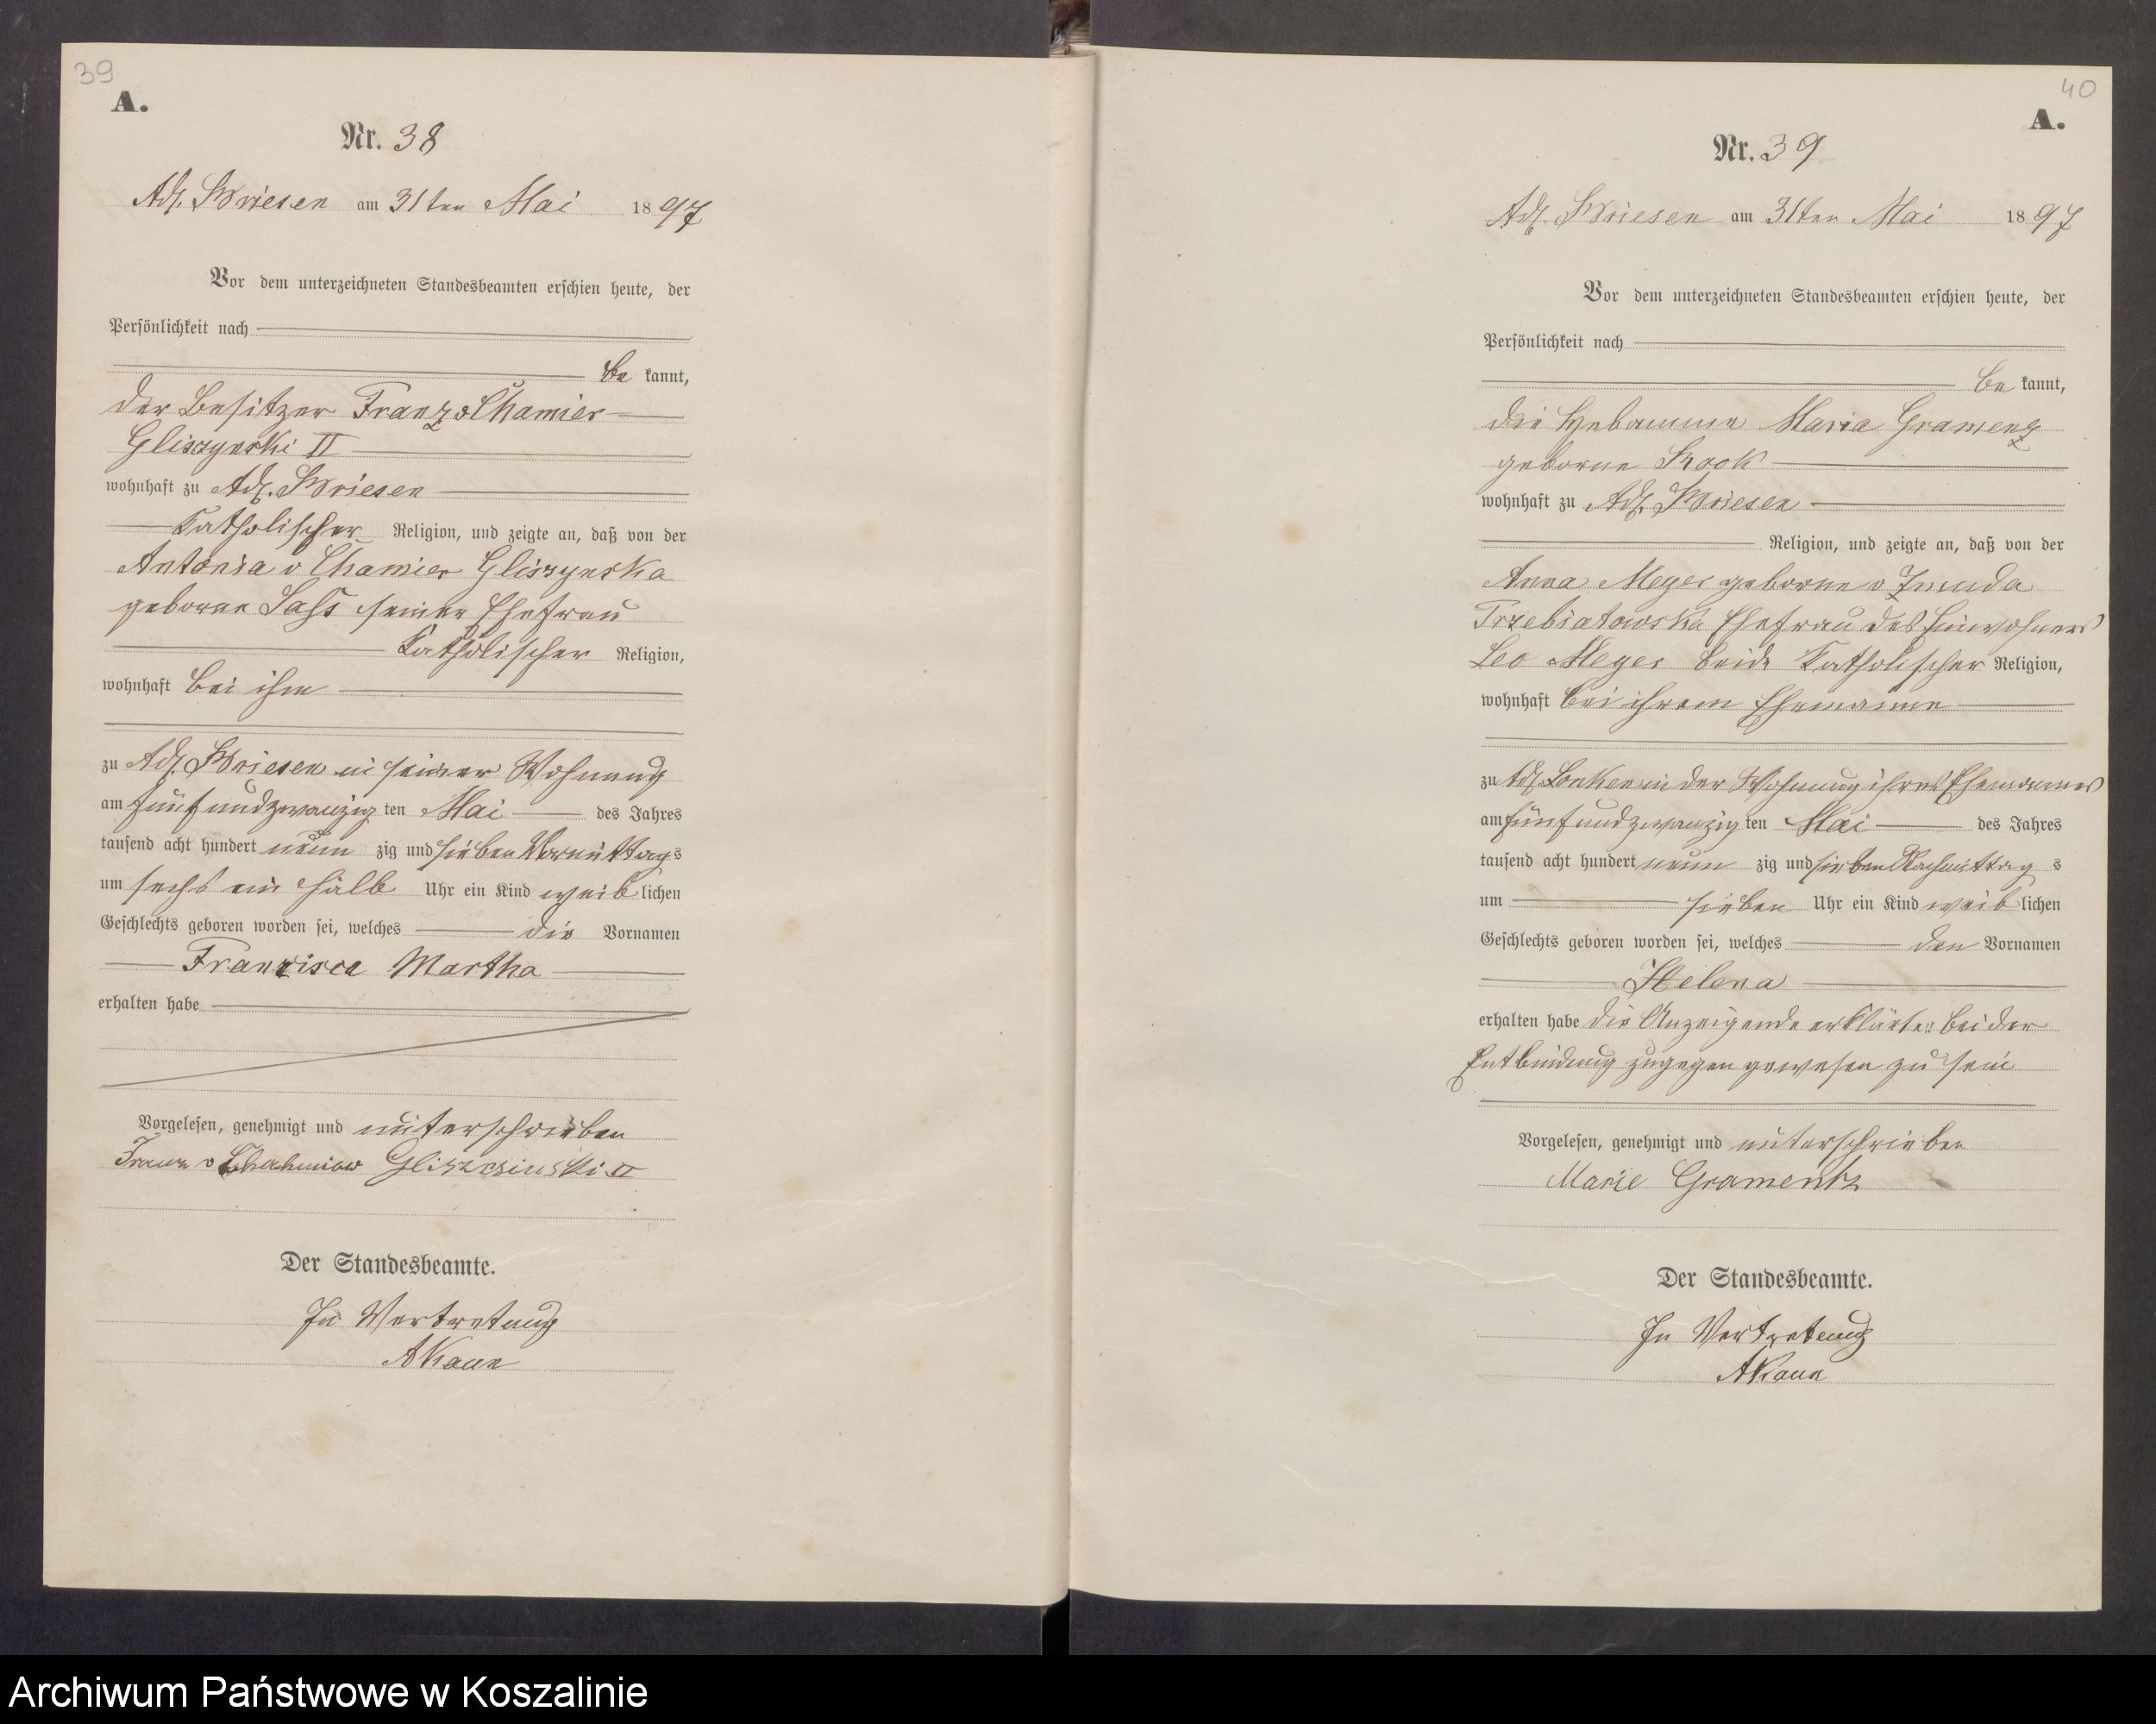 39
A.
Nr. 38
Adl. Briesen am 31ten Mai 1897
Vor dem unterzeichneten Standesbeamten erschien heute, der
Persönlichkeit nach
be kannt,
der Besitzer Franz v Chamier
Gliszynski II
wohnhaft zu Adl. Briesen
Katholischer Religion, und zeigte an, daß von der
Antonia v Chamier Gliszynska
geborne Sass seiner Ehefrau
Katholischer Religion,
wohnhaft bei ihm
zu Adl. Briesen in seiner Wohnung
am fünfundzwanzig ten Mai des Jahres
tausend acht hundert neun zig und sieben Vormittags
um sechs ein halb Uhr ein Kind weib lichen
Geschlechts geboren worden sei, welches die Vornamen
Franzisca Martha
erhalten habe
Vorgelesen, genehmigt und unterschrieben
Franz v Gliszcsinski II
Der Standesbeamte.
In Vertretung
40
A.
Nr. 39
Adl. Briesen am 31ten Mai 1897
Vor dem unterzeichneten Standesbeamten erschien heute, der
Persönlichkeit nach
be kannt,
die Hebamme Maria Gramenz
geborne
wohnhaft zu Adl. Briesen
Religion, und zeigte an, daß von der
Anna Meyer geborne v Zmuda
Trzebiatowska Ehefrau des Einwohners
Leo Meyer beide Katholischer Religion,
wohnhaft bei ihrem Ehemanne
zu Adl. Lonken in der Wohnung ihres Ehemannes
am fünfundzwanzig ten Mai des Jahres
tausend acht hundert neun zig und sieben Nachmittag s
um sieben Uhr ein Kind weib lichen
Geschlechts geboren worden sei, welches den Vornamen
Helena
erhalten habe die Anzeigende erklärte: bei der
Entbindung zugegen gewesen zu sein
Vorgelesen, genehmigt und unterschrieben
Marie Gramentz
Der Standesbeamte.
In Vertretung
Archiwum Państwowe w Koszalinie